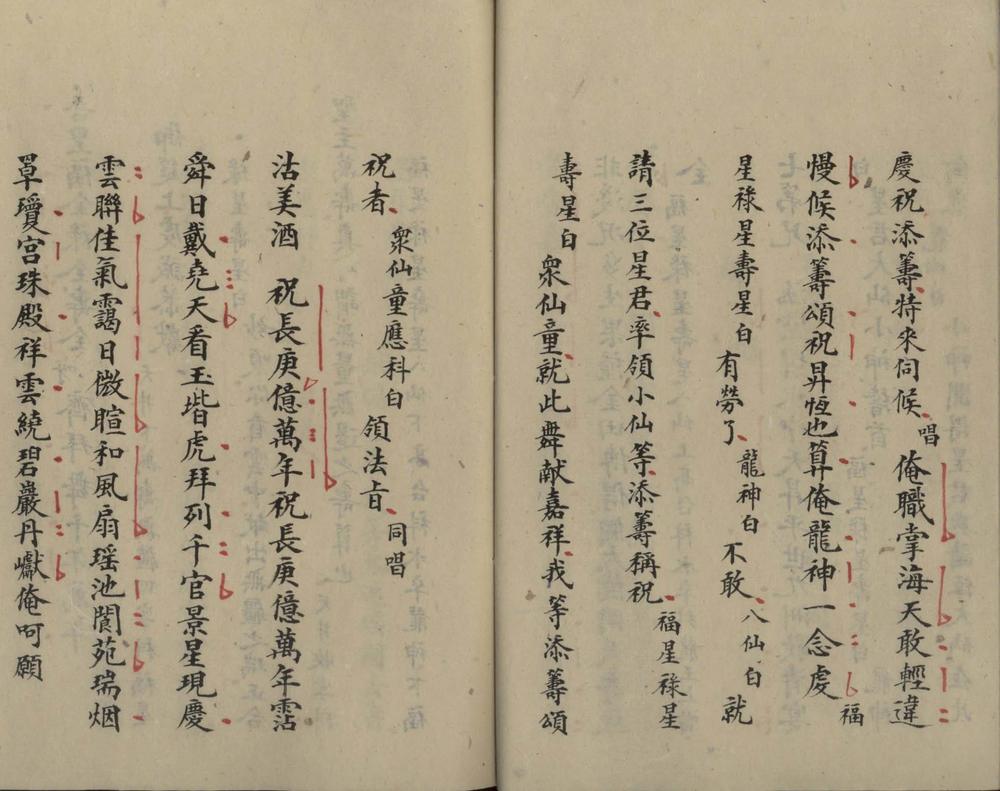 慶祝添籌特來伺候唱俺職掌海天敢輕違
慢候添籌頌祝昇恆也算俺龍神一念虔福
星祿星壽星白有勞了龍神白不敢八仙白就
請三位星君率領小仙等添籌稱祝福星祿星
壽星白衆仙童就此舞献嘉祥我等添籌頌
祝者衆仙童應科白領法旨同唱
沽美酒 祝長庚億萬年祝長庚億萬年霑
舜日戴堯天看玉堦虎拜列千官景星現慶
雲聯佳氣靄日微暄和風扇瑶池閬苑瑞烟
罩瓊宫珠殿祥雲繞碧巖丹巘俺呵願